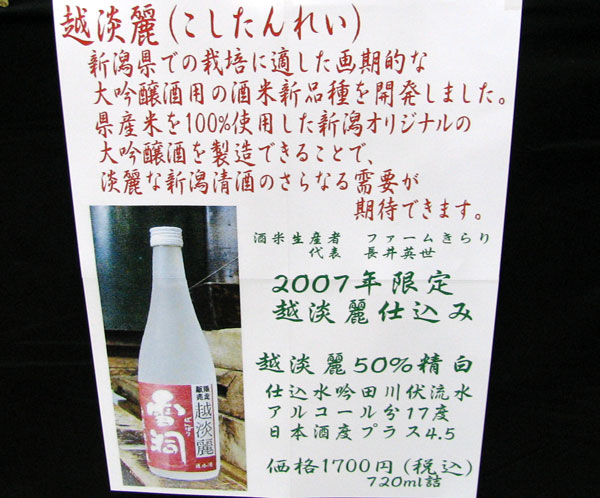 越淡麗(こしたんれい)
新潟県での栽培に適した画期的な
大吟醸酒用の酒米新品種を開発しました。
県産米を100%使用した新潟オリジナルの
大吟醸酒を製造できることで、
淡麗な新潟清酒のさらなる需要が
期待できます。
酒米生産者 ファームきらり
代表 長井英世
2007年限定
越淡麗仕込み
越淡麗50%精白
仕込水吟田川伏流水
アルコール分17度
日本酒度プラス4.5
価格1700円(税込)
720ml詰
限定
販売
越淡麗
雪洞